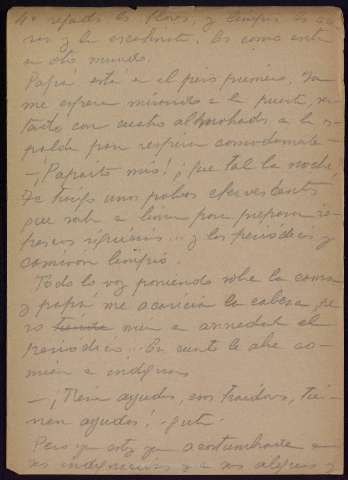 4º repartir las flores, y limpiar los
y la escalerita. Es como entrar
en otro mundo.
Papá está en el piso primero. Ya
me espera mirando a la puerta, sen-
tado con cuatro almohadas a la es-
palda para respirar comodamente
— ¡Papaito mio! ¿Que tal la noche?
Te traigo unos polvos efervescentes
que vale a leman para preparar re-
frescos riquísimos... y los periodicos y
camison limpio.
Todo lo voy poniendo sobre la cama
y papá me acaricia la cabeza, pe-
ro mira a arrebatar el
periódico. En cuanto le abre co-
mienza a indignarse
— ¡Tienen ayudas, esos traidores, tie-
nen ayudas! grita.
Pero yo estoy ya acostumbrada a
sus indignaciones y a sus alegrias y